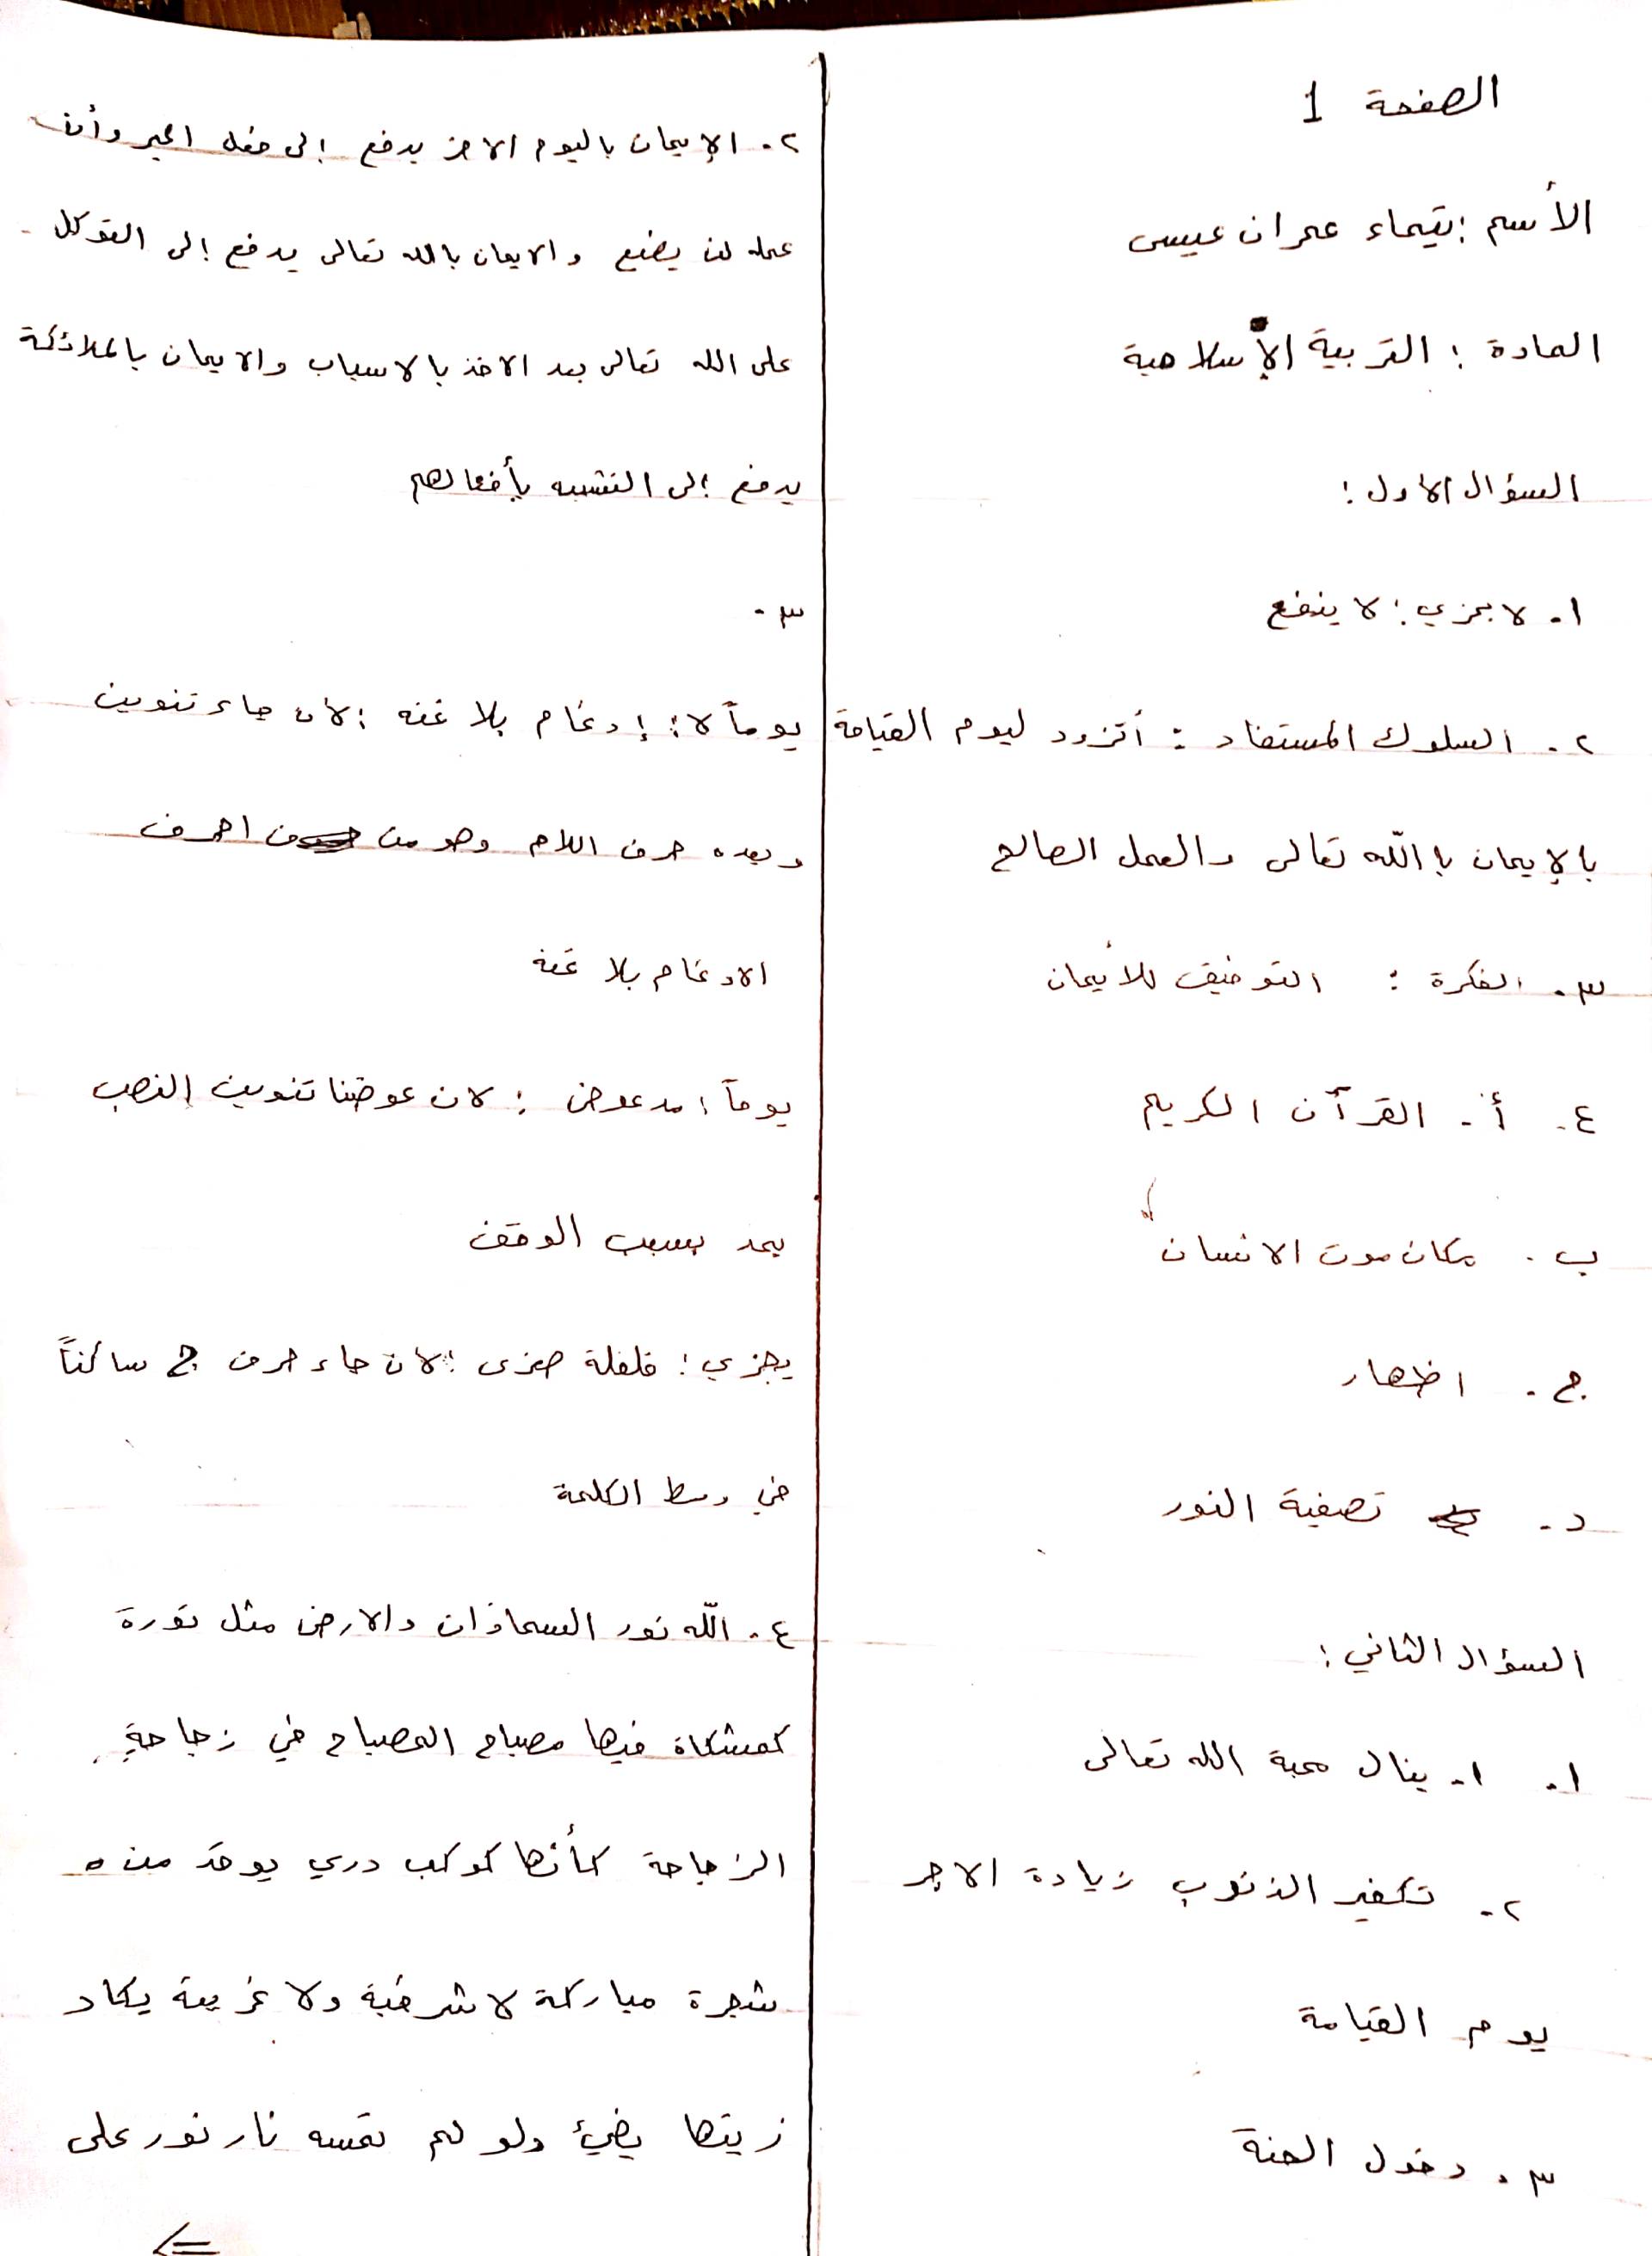 الصفحة 1
الأسم : تيماء عمران عيسى
المادة : التربية الإسلامية
السؤال الاول :
١. لا يجزي : لا ينفع
٢. السلوك المستفاد : أتزود ليوم القيامة
بالإيمان باالله تعالى والعمل الصالح
٣. الفكرة : التوفيق للأيمان
٤. أ. القرآن الكريم
ب. مكان موت الانسان
ج. اظهار
د. تصفية النور
السؤال الثاني :
١. ١. ينال محبة الله تعالى
٢. تكفير الذنوب زيادة الاجر
يوم القيامة
٣. دخول الجنة
٢. الإيمان باليوم الاخر يدفع إلى فعل الخير وأن
عمله لن يضيع والايمان بالله تعالى يدفع إلى التوكل
على الله تعالى بعد الاخذ بالاسباب والايمان بالملائكة
يدفع إلى التشبه بأفعالهم
٣.
يوماً لا : إدغام بلا غنه : لان جاء تنوين
وبعده حرف اللام وهو من احرف
الادغام بلا غنه
يوماً : مد عوض : لان عوضنا تنوين النصب
بمد بسبب الوقف
يجزي : قلقلة صغرى : لان جاء حرف ج ساكناً
في وسط الكلمة
٤. الله نور السماوات والارض مثل نورة
كمشكاة فيها مصباح المصباح في زجاجةٍ
الزجاجة كأنها كوكب دري يوقد من
شجرة مباركة لا شرقية ولا غربية يكاد
زيتها يضيئ ولو لم تمسه نار نور على